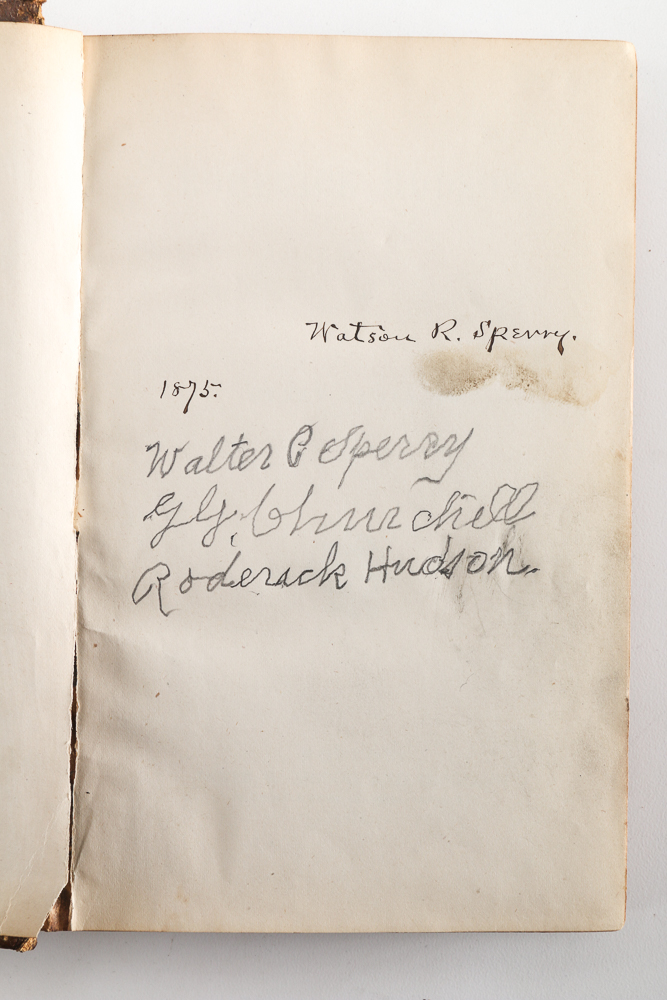 Watson R. Sperry.
1875.
Walter P Sperry
G G. Churchill
Roderack Hudson.